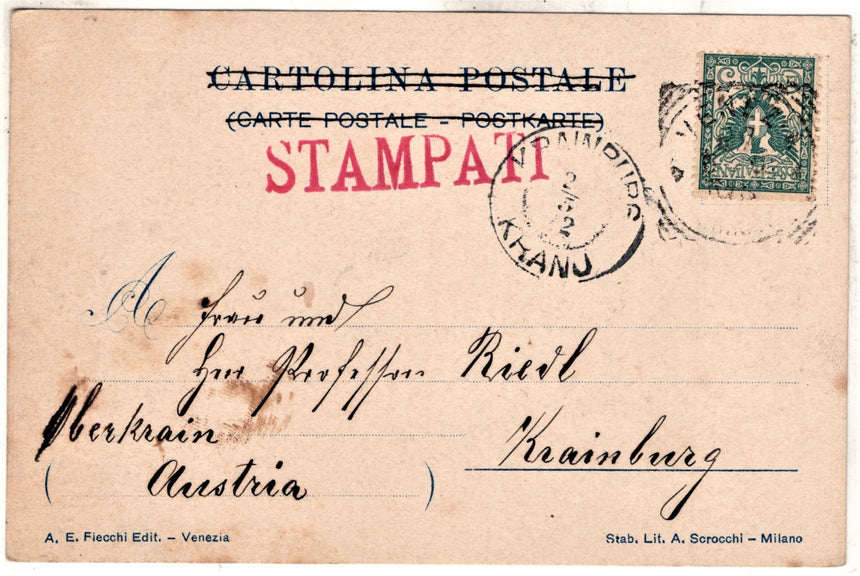 CARTOLINA POSTALE
(CARTE POSTALE - POSTKARTE)
STAMPATI
KRAINBURG
2
3
2
KRANJ
A Frau und
Herr Professor Riedl
Oberkrain
Krainburg
(Austria)
A. E. Fiecchi Edit. – Venezia
Stab. Lit. A. Scrocchi – Milano